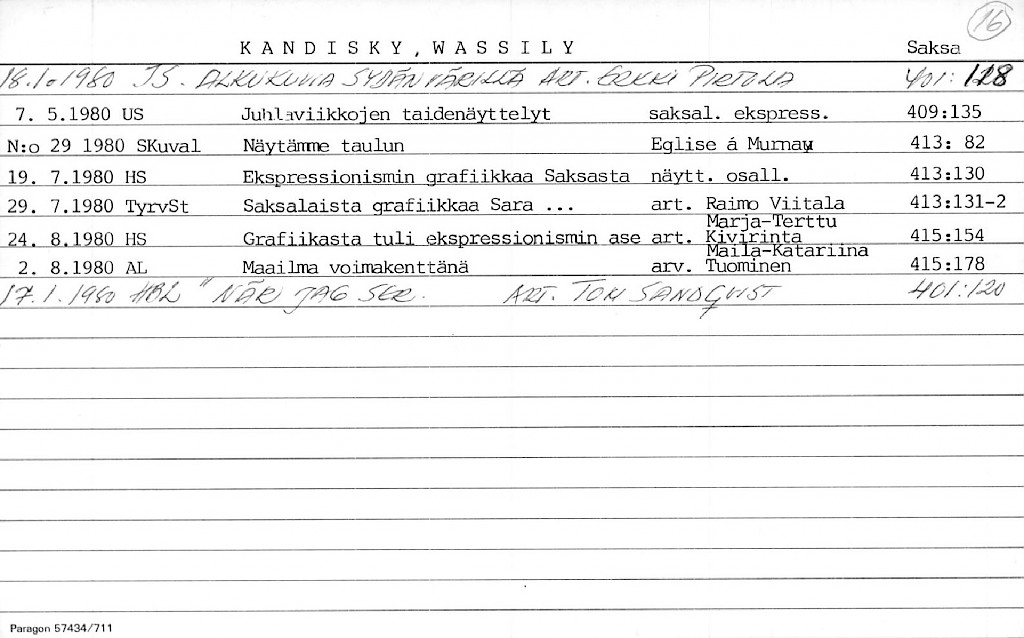 16
KANDISKY, WASSILY Saksa
18.1.1980 IS. ALKUKUVIA SYDÄNVÄREILLÄ ART. ERKKI PIRTOLA 401:128
7. 5.1980 US Juhlaviikkojen taidenäyttelyt saksal. ekspress. 409:135
N:o 29 1980 SKuval Näytämme taulun Eglise á Murnau 413: 82
19. 7.1980 HS Ekspressionismin grafiikkaa Saksasta näytt. osall. 413:130
29. 7.1980 TyrvSt Saksalaista grafiikkaa Sara ... art. Raimo Viitala 413:131-2
Marja-Terttu
24. 8.1980 HS Grafiikasta tuli ekspressionismin ase art. Kivirinta 415:154
Maila-Katariina
2. 8.1980 AL Maailma voimakenttänä arv. Tuominen 415:178
17.1.1980 HBL "NÄR JAG SER. ART. TOM SANDQVIST 401:120
Paragon 57434/711